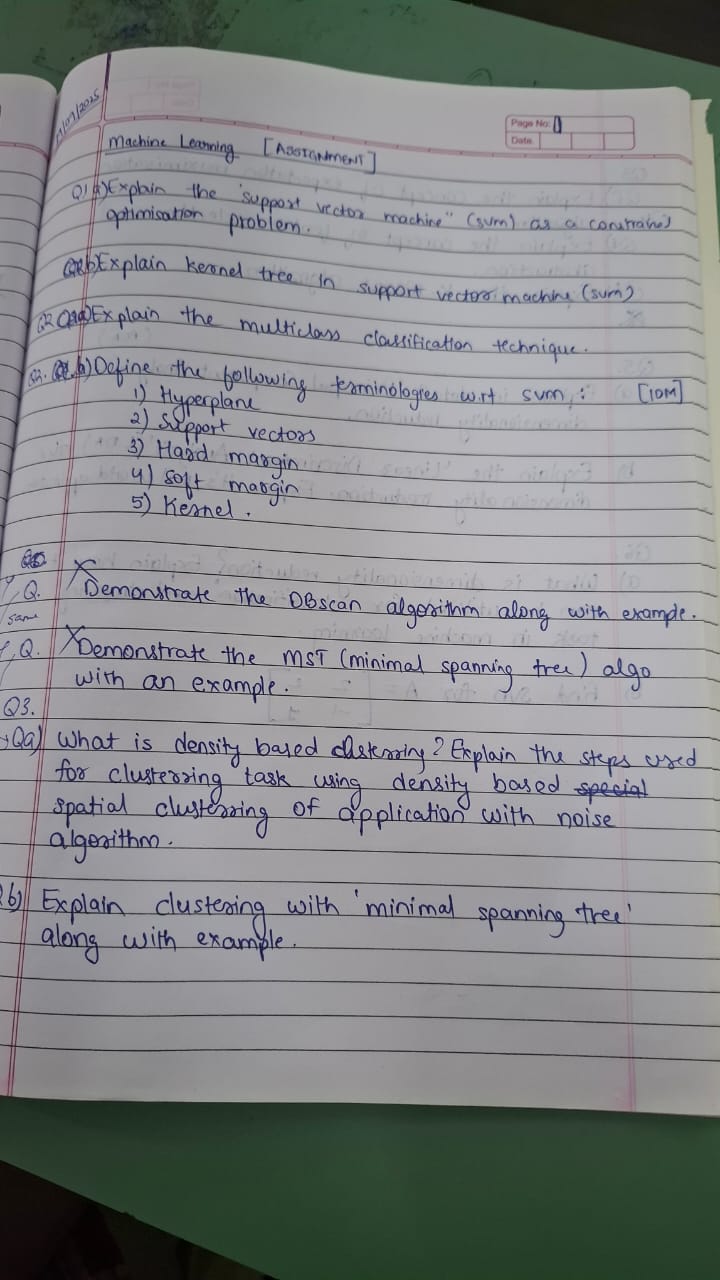 /07/2025
Page No:
Date
Machine Learning [ASSIGNMENT]
Q1 a) Explain the "support vector machine" (svm) as a constrained
optimisation problem.
b) Explain kernel tree in support vector machine (svm)
Q2 a) Explain the multiclass classification technique.
Q2. b) Define the following terminologies w.r.t svm : [10M]
1) Hyperplane
2) Support vectors
3) Hard margin
4) Soft margin
5) Kernel .
Q. X Demonstrate the DBscan algorithm along with example.
same
Q. X Demonstrate the MST (minimal spanning tree) algo
with an example.
Q3.
Qa) What is density based clustering? Explain the steps used
for clustering task using density based special
spatial clustering of application with noise
algorithm.
b) Explain clustering with 'minimal spanning tree'
along with example.